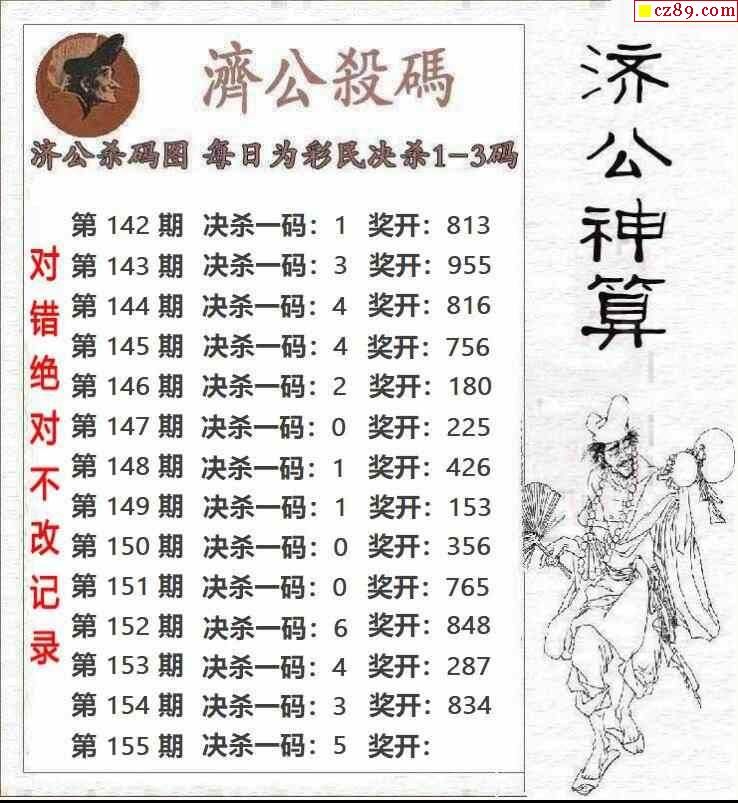 cz89.com
濟公殺碼
济公杀码图 每日为彩民决杀1-3码
第 142 期 决杀一码：1 奖开：813
第 143 期 决杀一码：3 奖开：955
第 144 期 决杀一码：4 奖开：816
第 145 期 决杀一码：4 奖开：756
第 146 期 决杀一码：2 奖开：180
第 147 期 决杀一码：0 奖开：225
第 148 期 决杀一码：1 奖开：426
第 149 期 决杀一码：1 奖开：153
第 150 期 决杀一码：0 奖开：356
第 151 期 决杀一码：0 奖开：765
第 152 期 决杀一码：6 奖开：848
第 153 期 决杀一码：4 奖开：287
第 154 期 决杀一码：3 奖开：834
第 155 期 决杀一码：5 奖开：
对错绝对不改记录
济公神算